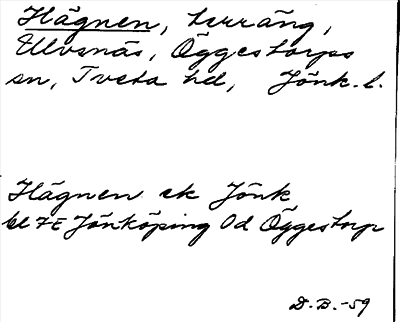 Hägnen, terräng,
Ulvsnäs, Öggestorps
sn, Tveta hd, Jönk. l.
Hägnen ek Jönk
bl 7E Jönköping Od Öggestorp
D.B.-59